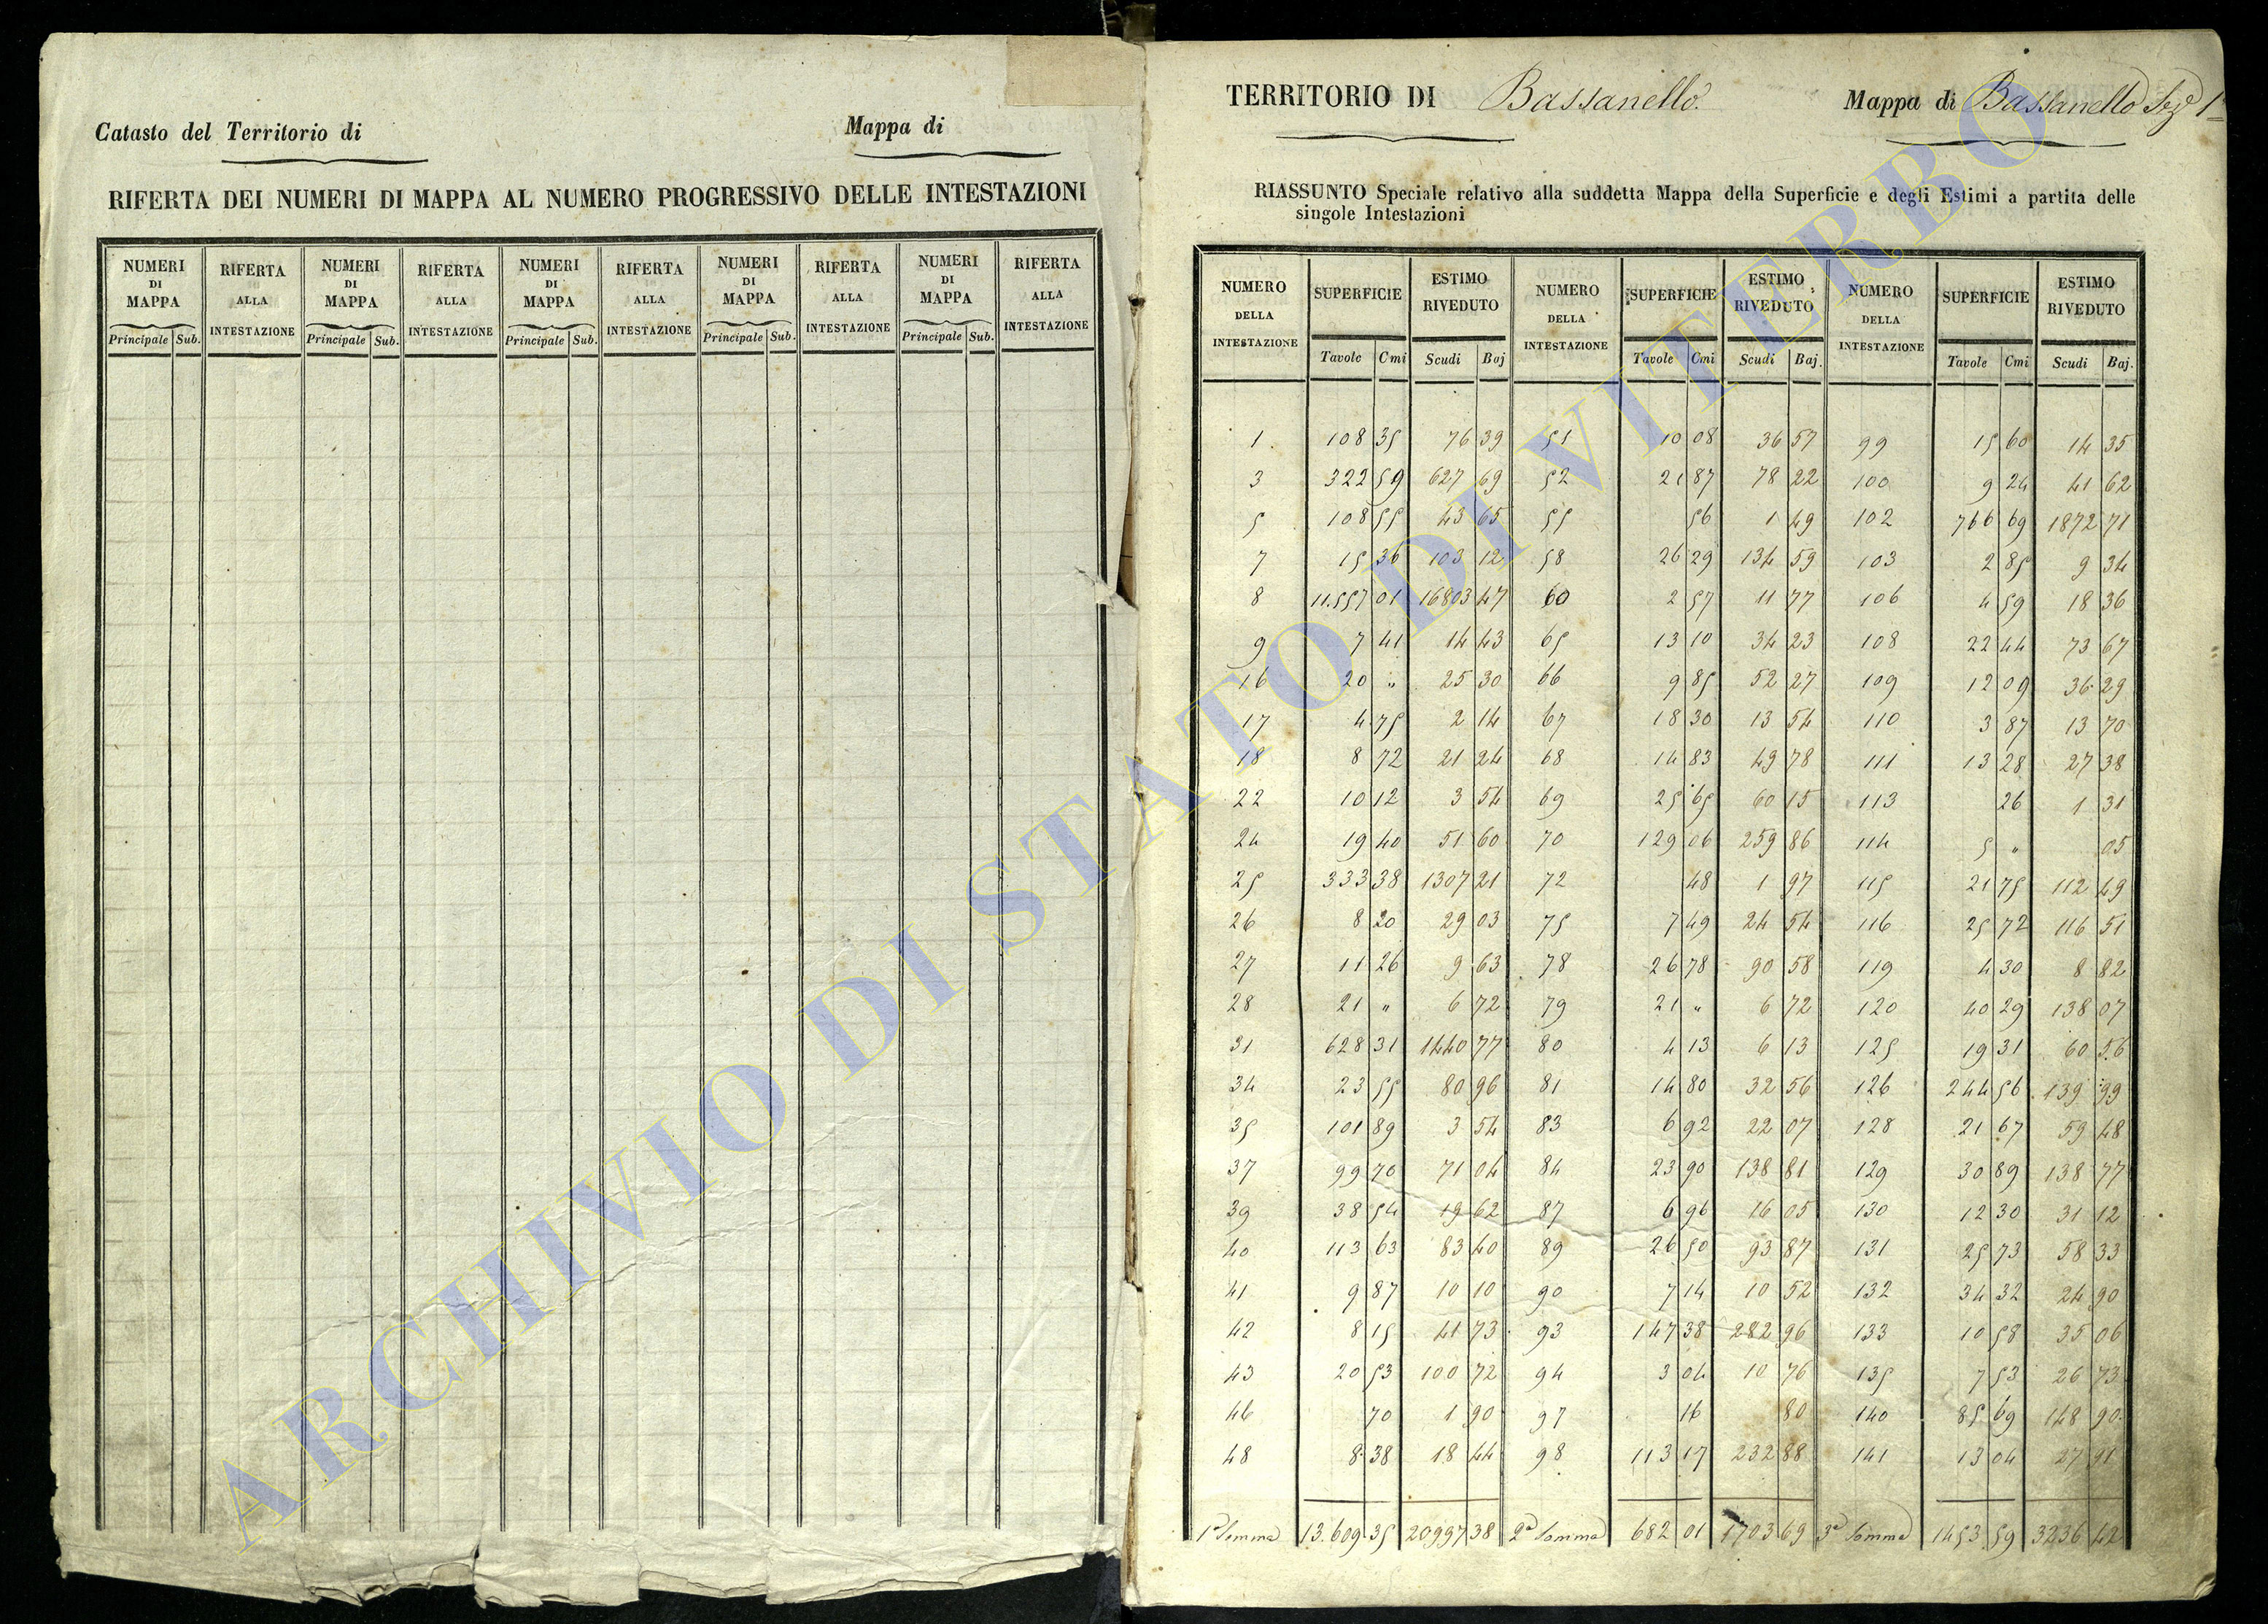 Catasto del Territorio di
Mappa di
RIFERTA DEI NUMERI DI MAPPA AL NUMERO PROGRESSIVO DELLE INTESTAZIONI
NUMERI DI MAPPA RIFERTA ALLA INTESTAZIONE NUMERI DI MAPPA RIFERTA ALLA INTESTAZIONE NUMERI DI MAPPA RIFERTA ALLA INTESTAZIONE NUMERI DI MAPPA RIFERTA ALLA INTESTAZIONE NUMERI DI MAPPA RIFERTA ALLA INTESTAZIONE
Principale Sub. Principale Sub. Principale Sub. Principale Sub. Principale Sub.
TERRITORIO DI Bassanello
Mappa di Bassanello Sez 1
RIASSUNTO Speciale relativo alla suddetta Mappa della Superficie e degli Estimi a partita delle
singole Intestazioni
NUMERO DELLA INTESTAZIONE SUPERFICIE ESTIMO RIVEDUTO NUMERO DELLA INTESTAZIONE SUPERFICIE ESTIMO RIVEDUTO NUMERO DELLA INTESTAZIONE SUPERFICIE ESTIMO RIVEDUTO
Tavole Cmi Scudi Baj Tavole Cmi Scudi Baj. Tavole Cmi Scudi Baj.
1 108 35 76 39 51 10 08 36 57 99 15 60 14 35
3 322 59 627 69 52 21 87 78 22 100 9 24 41 62
5 108 55 43 65 55 56 1 49 102 766 69 1872 71
7 15 36 103 12 58 26 29 134 59 103 2 85 9 34
8 11.557 01 16803 47 60 2 57 11 77 106 4 59 18 36
9 7 41 14 43 65 13 10 34 23 108 22 44 73 67
16 20 " 25 30 66 9 85 52 27 109 12 09 36 29
17 4 75 2 14 67 18 30 13 54 110 3 87 13 70
18 8 72 21 24 68 14 83 49 78 111 13 28 27 38
22 10 12 3 54 69 25 65 60 15 113 26 1 31
24 19 40 51 60 70 129 06 259 86 114 5 " 05
25 333 38 1307 21 72 48 1 97 115 21 75 112 49
26 8 20 29 03 75 7 49 24 54 116 25 72 116 51
27 11 26 9 63 78 26 78 90 58 119 4 30 8 82
28 21 " 6 72 79 21 " 6 72 120 40 29 138 07
31 628 31 1440 77 80 4 13 6 13 125 19 31 60 56
34 23 55 80 96 81 14 80 32 56 126 244 56 139 99
35 101 89 3 54 83 6 92 22 07 128 21 67 59 48
37 99 70 71 04 84 23 90 138 81 129 30 89 138 77
39 38 54 19 62 87 6 96 16 05 130 12 30 31 12
40 113 63 83 40 89 26 50 93 87 131 25 73 58 33
41 9 87 10 10 90 7 14 10 52 132 34 32 24 90
42 8 15 41 73 93 147 38 282 96 133 10 58 35 06
43 20 53 100 72 94 3 04 10 76 135 7 53 26 73
46 70 1 90 97 16 80 140 85 69 148 90
48 8 38 18 44 98 113 17 232 88 141 13 04 27 91
1a Somma 13.609 35 20997 38 2a Somma 682 01 1703 69 3a Somma 1453 59 3236 42
ARCHIVIO DI STATO DI VITERBO